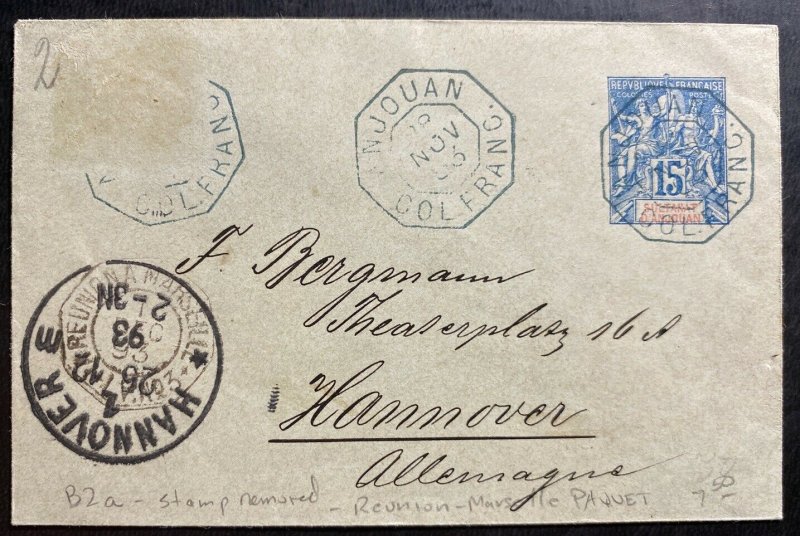 2
COL. FRANC
ANJOUAN
18
NOV
COL FRANC.
REPVBLIQVE FRANÇAISE
COLONIES POSTES
15
SULTANAT
D'ANJOUAN
COL FRANC.
F. Bergmann
Theaterplatz 16 A
Hannover
Allemagne
REUNION A MARSEILLE
HANNOVER
2-3N
93
26
B2a - stamp removed - Réunion-Marseille PAQUET